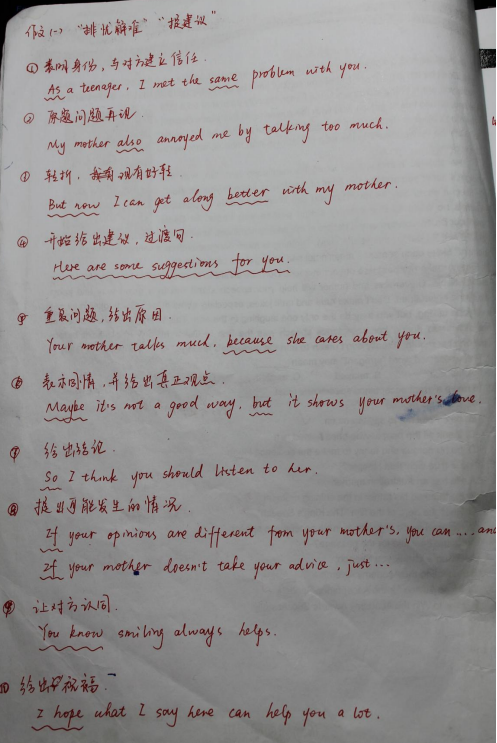 作文(一) "排忧解难" "提建议"
① 表明身份,与对方建立信任.
As a teenager, I met the same problem with you.
② 原题问题再现.
My mother also annoyed me by talking too much.
③ 转折,现有好转.
But now I can get along better with my mother.
④ 开始给出建议,过渡句.
Here are some suggestions for you.
⑤ 重复问题,给出原因.
Your mother talks much, because she cares about you.
⑥ 表示同情,并给出真正观点.
Maybe it's not a good way, but it shows your mother's love.
⑦ 给出结论.
So I think you should listen to her.
⑧ 提出可能发生的情况.
If your opinions are different from your mother's, you can ..., and
If your mother doesn't take your advice, just ...
⑨ 让对方认同.
You know smiling always helps.
⑩ 给出祝福.
I hope what I say here can help you a lot.